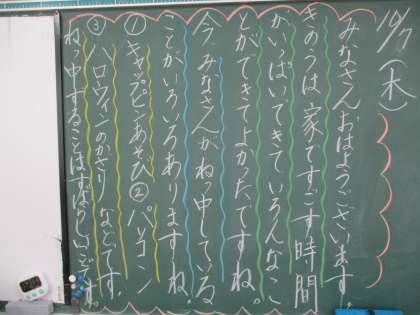 10/7(木)
みなさんおはようございます。
きのうは家ですごす時間
がいっぱいできていろんなこ
とができてよかったですね。
今、みなさんがねっ中している
ことがいろいろありますね。
①キャップピンあそび②パソコン
③ハロウィンのかざりなどです。
ねっ中することはすばらしいことです。